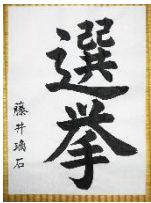 選挙
藤井璃石